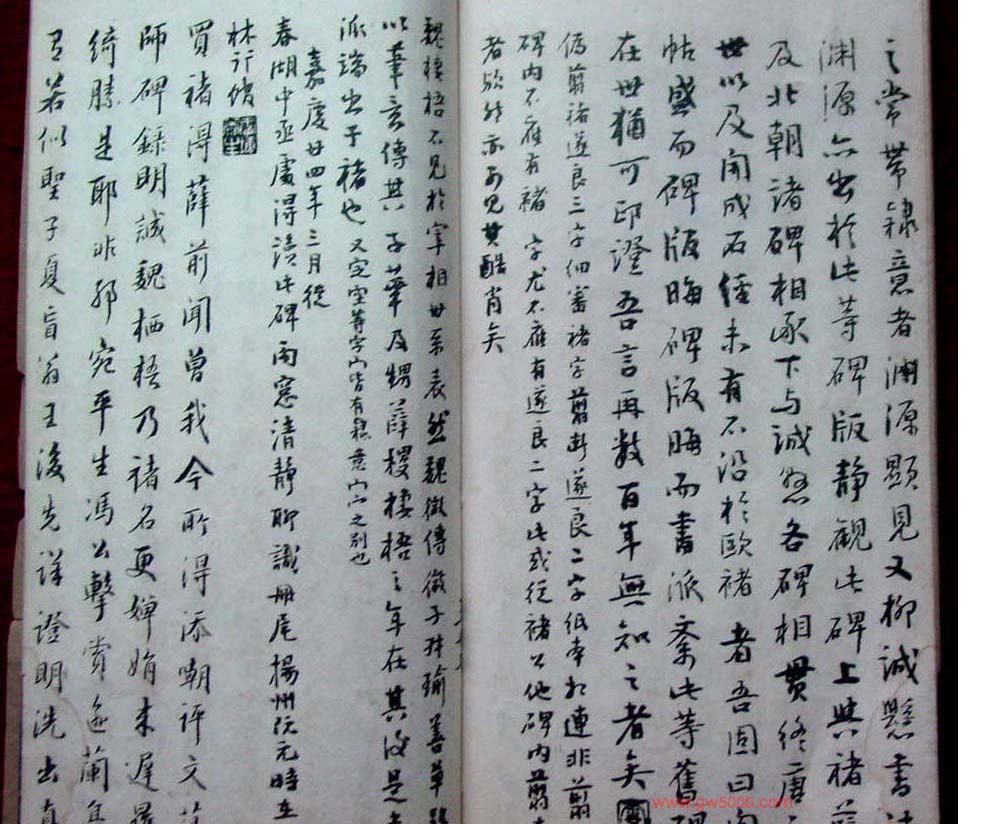 之常帶隸意者淵源顯見又柳誠懸書法
淵源亦出於此等碑版靜觀此碑上與褚薛
及北朝諸碑相承下與誠懸各碑相貫終唐之
世以及開成石經未有不沿於歐褚者吾固曰
帖盛而碑版晦碑版晦而書派紊此等舊碑
在世猶可印證吾言再數百年無知之者矣
偽剪褚遂良三字細審褚字剪斷遂良二字紙本相連非剪
碑內不應有褚字尤不應有遂良二字此或從褚公他碑內剪
者欤然亦可見其酷肖矣
魏棲梧不見於宰相世系表然魏徵傳徵子叔瑜善草隸
以筆意傳其子華及甥薛稷棲梧之年在其後是
派端出于褚也又定空等字宀皆有隸意宀之別也
嘉慶廿四年三月從
春湖中丞處得讀此碑雨窓清靜聊識册尾揚州阮元時在
林行館
買褚得薛前聞曾我今所得添嘲評文
師碑錄明誠魏栖梧乃褚名更嬋娟未遲
綺勝是耶非邪宛平生馮公擊賞逾蘭
有若似聖子夏盲翁王後先詳證明洗出
www.gw5000.com